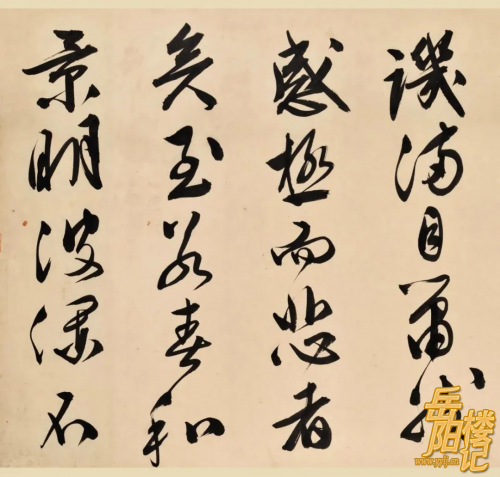 譏滿目蕭然
感極而悲者
矣至若春和
景明波瀾不
岳阳楼记